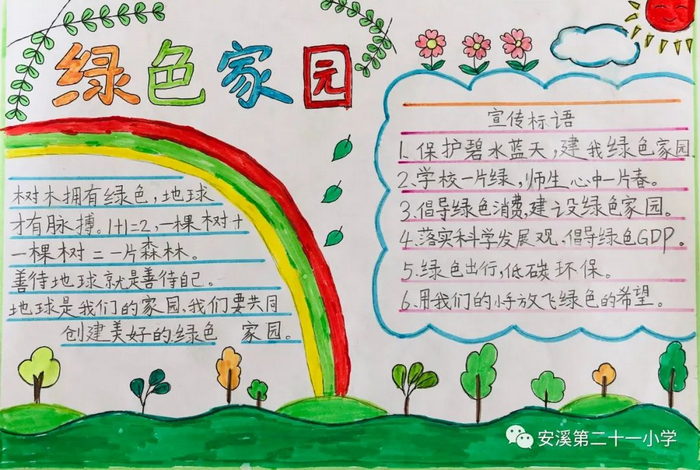 绿色家园
树木拥有绿色,地球
才有脉搏。1+1=2,一棵树+
一棵树=一片森林。
善待地球就是善待自己。
地球是我们的家园、我们要共同
创建美好的绿色 家园。
宣传标语
1.保护碧水蓝天,建我绿色家园.
2.学校一片绿,师生心中一片春。
3.倡导绿色消费,建设绿色家园。
4.落实科学发展观、倡导绿色GDP。
5.绿色出行,低碳环保。
6.用我们的小手放飞绿色的希望。
安溪第二十一小学